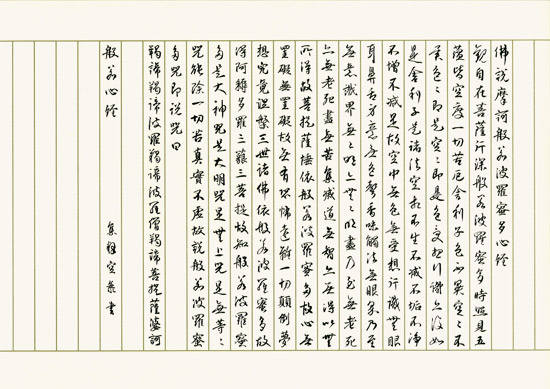 佛説摩訶般若波羅蜜多心經
觀自在菩薩行深般若波羅蜜多時照見五
蘊皆空度一切苦厄舍利子色不異空々不
異色々即是空々即是色受想行識亦復如
是舍利子是諸法空相不生不滅不垢不淨
不增不減是故空中無色無受想行識無眼
耳鼻舌身意無色聲香味觸法無眼界乃至
無意識界無々明亦無々明盡乃至無老死
亦無老死盡無苦集滅道無智亦無得以無
所得故菩提薩埵依般若波羅蜜多故心無
罣礙無罣礙故無有恐怖遠離一切顛倒夢
想究竟涅槃三世諸佛依般若波羅蜜多故
得阿耨多羅三藐三菩提故知般若波羅蜜
多是大神咒是大明咒是無上咒是無等々
咒能除一切苦真實不虛故説般若波羅蜜
多咒即説咒曰
羯諦羯諦波羅羯諦波羅僧羯諦菩提薩婆訶
般若心經
書